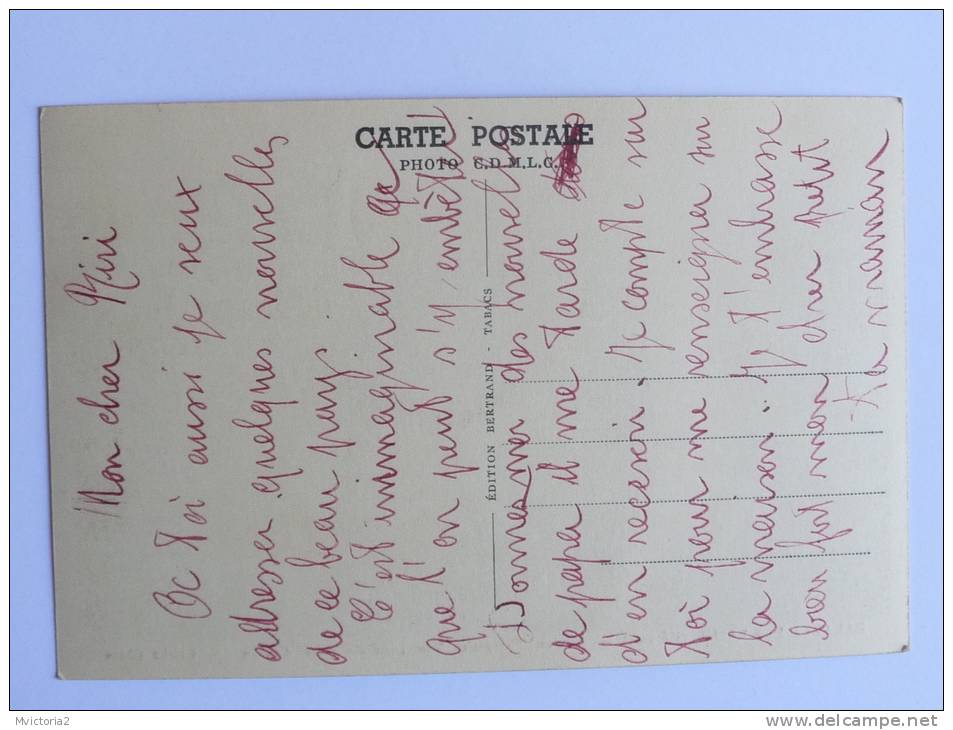 CARTE POSTALE
PHOTO C.D.M.L.C.
ÉDITION BERTRAND - TABACS
Mon cher Riri
A Toi aussi je veux
adresser quelques nouvelles
de ce beau pays
C'est inmaginable
que l'on peut s'y embêter
Donnes moi des nouvelles
de papa il me tarde
d'en recevoir. Je compte sur
Toi pour me renseigner sur
la maison. Je T'embrasse
bien fort mon cher petit
Ta maman
Mvictoria2
www.delcampe.net